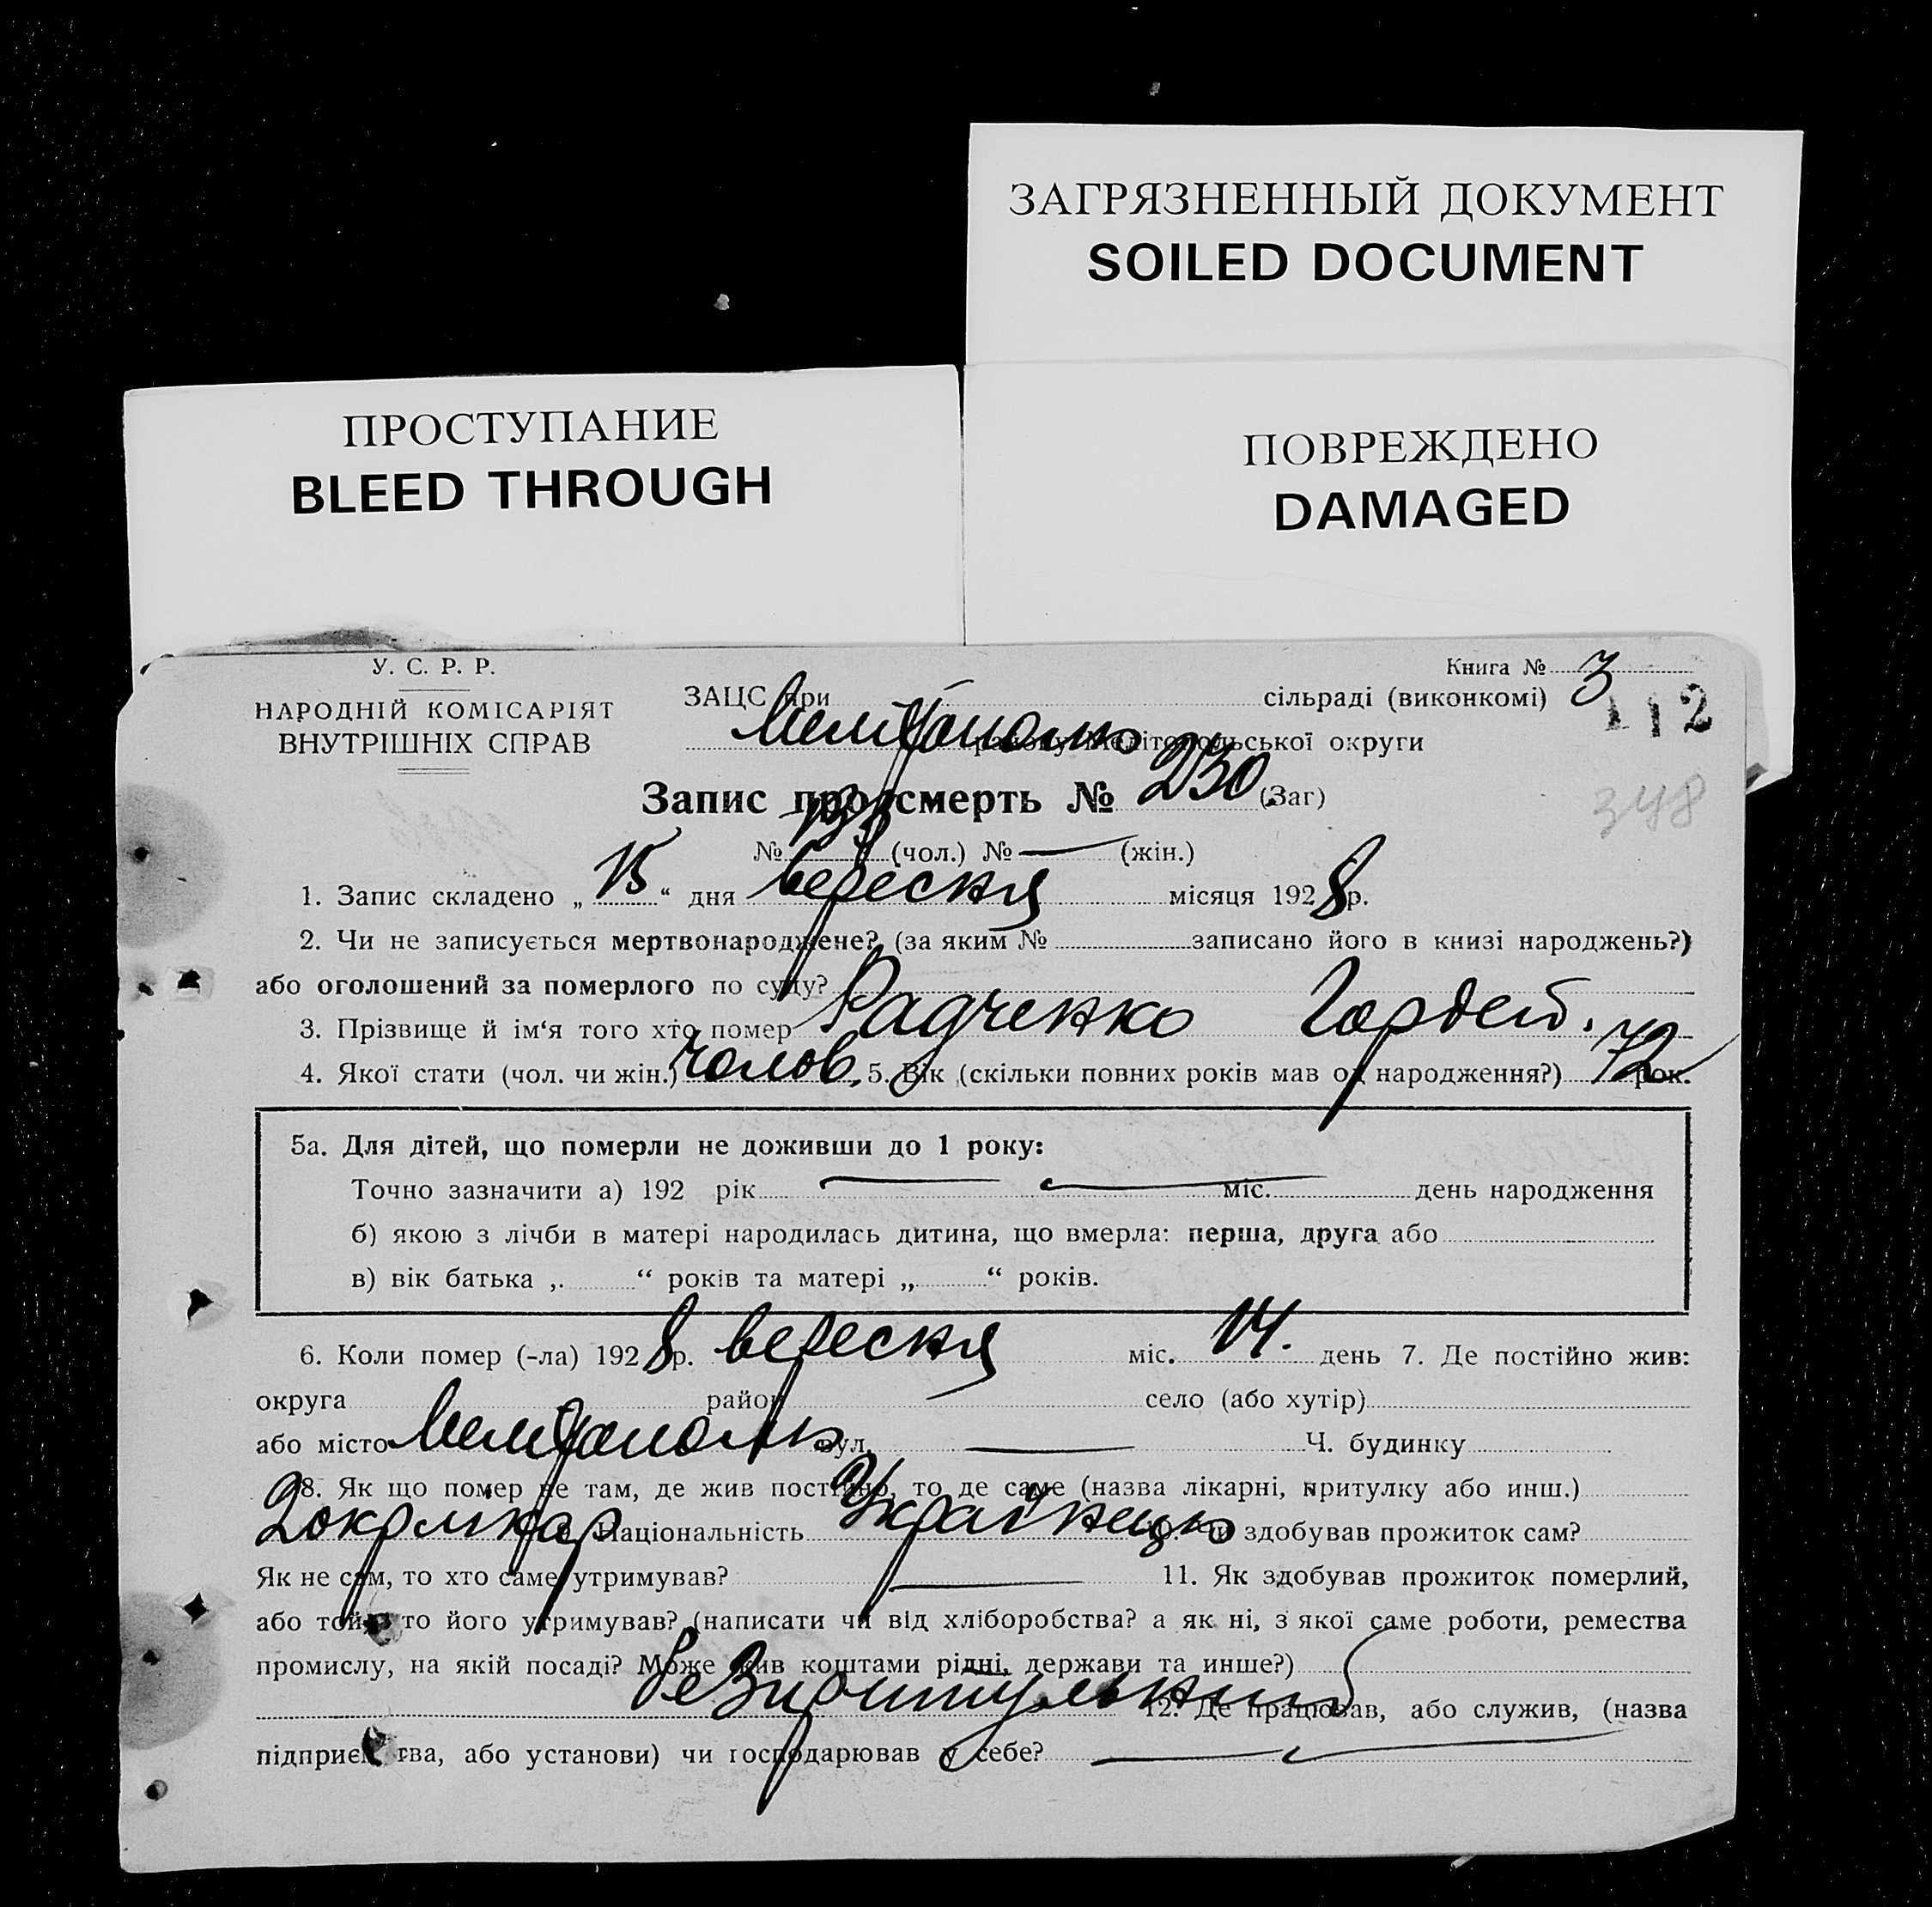 ЗАГРЯЗНЕННЫЙ ДОКУМЕНТ
SOILED DOCUMENT
ПРОСТУПАНИЕ
BLEED THROUGH
ПОВРЕЖДЕНО
DAMAGED
У. С. Р. Р.
НАРОДНІЙ КОМІСАРІЯТ
ВНУТРІШНІХ СПРАВ
Книга № 3
ЗАЦС при сільраді (виконкомі)
112
Мелітополь району Мелітопольської округи
Запис про смерть № 230 (Заг)
348
№ (чол.) № — (жін.)
1. Запис складено „ 15 “ дня вересня місяця 1928 р.
2. Чи не записується мертвонароджене? (за яким № записано його в книзі народжень?)
або оголошений за померлого по суду?
3. Прізвище й ім‘я того хто помер Радченко Гордей.
4. Якої стати (чол. чи жін.) Чолов. 5. Вік (скільки повних років мав од народження?) 72 рок.
5а. Для дітей, що померли не доживши до 1 року:
Точно зазначити а) 192 рік — — міс. день народження
б) якою з лічби в матері народилась дитина, що вмерла: перша, друга або
в) вік батька „ “ років та матері „ “ років.
6. Коли помер (-ла) 1928 р. вересня міс. 14. день 7. Де постійно жив:
округа район село (або хутір)
або місто Мелітополь вул. — Ч. будинку
8. Як що помер не там, де жив постійно, то де саме (назва лікарні, притулку або инш.)
9. Національність Українець 10. Чи здобував прожиток сам?
Як не сам, то хто саме утримував? — 11. Як здобував прожиток померлий,
або той, хто його утримував? (написати чи від хліборобства? а як ні, з якої саме роботи, ремества
промислу, на якій посаді? Може жив коштами рідні, держави та инше?)
12. Де працював, або служив, (назва
підприємства, або установи) чи господарював у себе? —